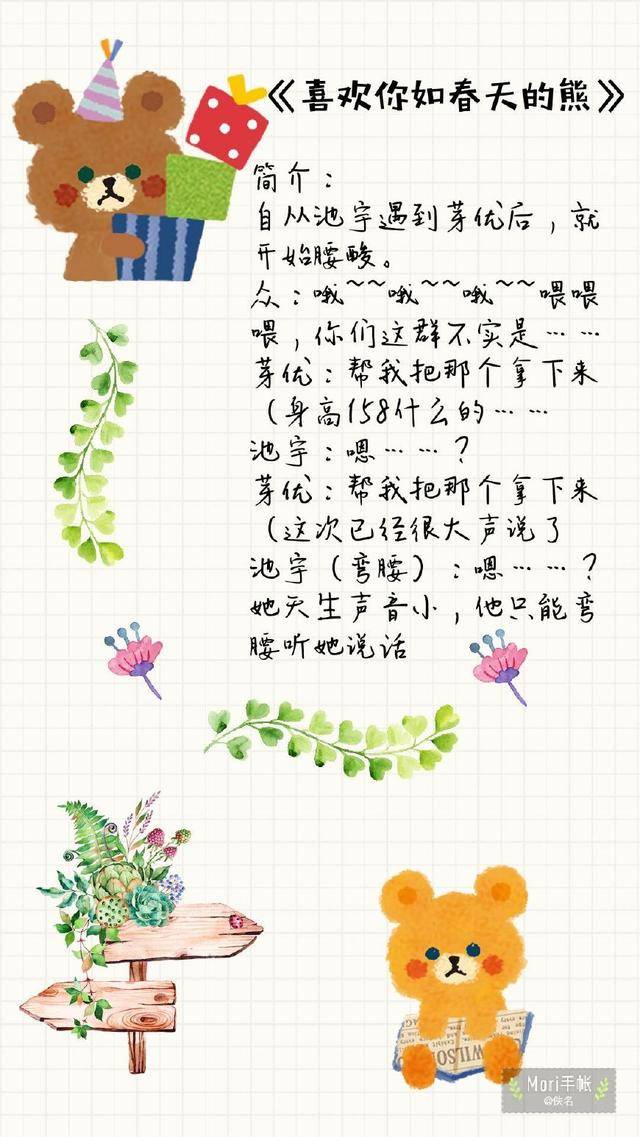 《喜欢你如春天的熊》
简介：
自从池宇遇到芽优后，就
开始腰酸。
众：哦~~哦~~哦~~喂喂
喂，你们这群不实是……
芽优：帮我把那个拿下来
（身高158什么的……
池宇：嗯……？
芽优：帮我把那个拿下来
（这次已经很大声说了
池宇（弯腰）：嗯……？
她天生声音小，他只能弯
腰听她说话
WILSON
Mori手帐
@佚名